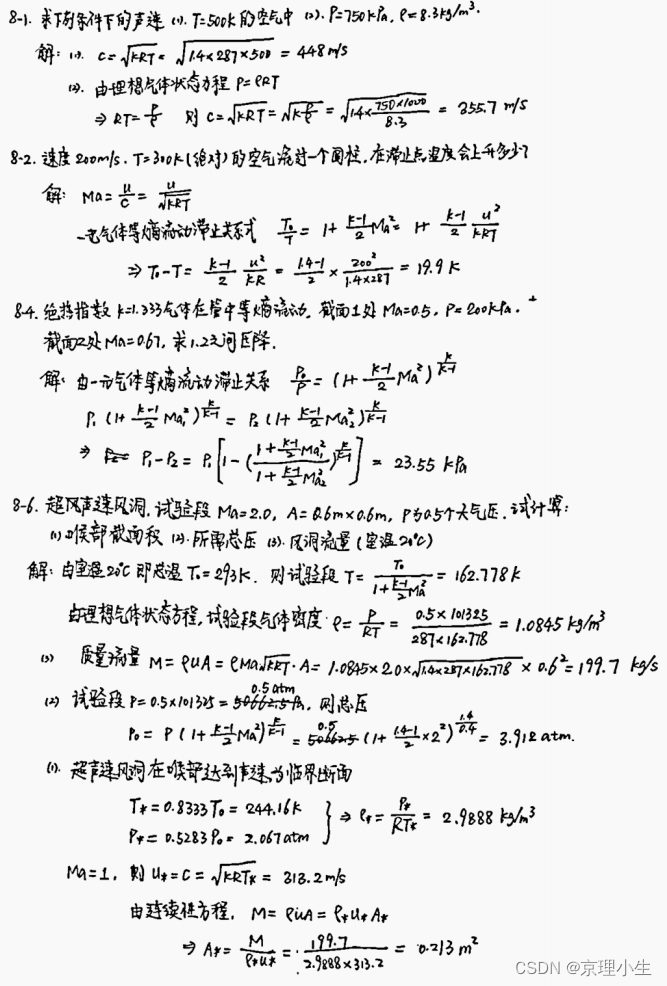 8-1. 求下列条件下的声速 (1). T=500K的空气中 (2). P=750kPa, ρ=8.3kg/m³.
解: (1). C=√kRT = √1.4×287×500 = 448m/s
(2). 由理想气体状态方程 P=ρRT
⇒ RT=P/ρ 则 C=√kRT=√k P/ρ = √1.4×(750×1000)/8.3 = 355.7 m/s
8-2. 速度200m/s. T=300K(绝对)的空气流过一个圆柱, 在滞止点温度会上升多少?
解: Ma = u/c = u/√kRT
一元气体等熵流动滞止关系式 T₀/T = 1+(k-1)/2 Ma² = 1+ (k-1)/2 u²/kRT
⇒ T₀-T = (k-1)/2 u²/kR = (1.4-1)/2 × 200²/(1.4×287) = 19.9 K
8-4. 绝热指数 k=1.333气体在管中等熵流动. 截面1处 Ma=0.5, P=200kPa.
截面2处 Ma=0.67, 求1.2之间压降.
解: 由一元气体等熵流动滞止关系 P₀/P = (1+(k-1)/2 Ma²)^(k/(k-1))
P₁ (1+(k-1)/2 Ma₁²)^(k/(k-1)) = P₂ (1+(k-1)/2 Ma₂²)^(k/(k-1))
⇒ P₁-P₂ = P₁[1-((1+(k-1)/2 Ma₁²)/(1+(k-1)/2 Ma₂²))^(k/(k-1))] = 23.55 kPa
8-6. 超声速风洞, 试验段 Ma=2.0, A=0.6m×0.6m, P为0.5个大气压. 试计算:
(1) 喉部截面积 (2). 所需总压 (3). 风洞流量 (室温20℃)
解: 由室温20℃即总温 T₀=293K. 则试验段 T= T₀/(1+(k-1)/2 Ma²) = 162.778K
由理想气体状态方程, 试验段气体密度 ρ= P/RT = (0.5×101325)/(287×162.778) = 1.0845 kg/m³
(3) 质量流量 M = ρuA = ρMa√kRT·A = 1.0845×2.0×√1.4×287×162.778 × 0.6² = 199.7 kg/s
(2) 试验段 P=0.5×101325 = 0.5atm, 则总压
P₀ = P (1+(k-1)/2 Ma²)^(k/(k-1)) = 0.5 (1+(1.4-1)/2 ×2²)^(1.4/0.4) = 3.912 atm.
(1). 超声速风洞在喉部达到声速为临界断面
T* = 0.8333T₀ = 244.16K
P* = 0.5283P₀ = 2.067atm } ⇒ ρ* = P*/RT* = 2.9888 kg/m³
Ma=1, 则 u*=C=√kRT* = 313.2m/s
由连续性方程, M = ρuA = ρ*u*A*
⇒ A* = M/ρ*u* = 199.7/(2.9888×313.2) = 0.213 m²
CSDN @京理小生